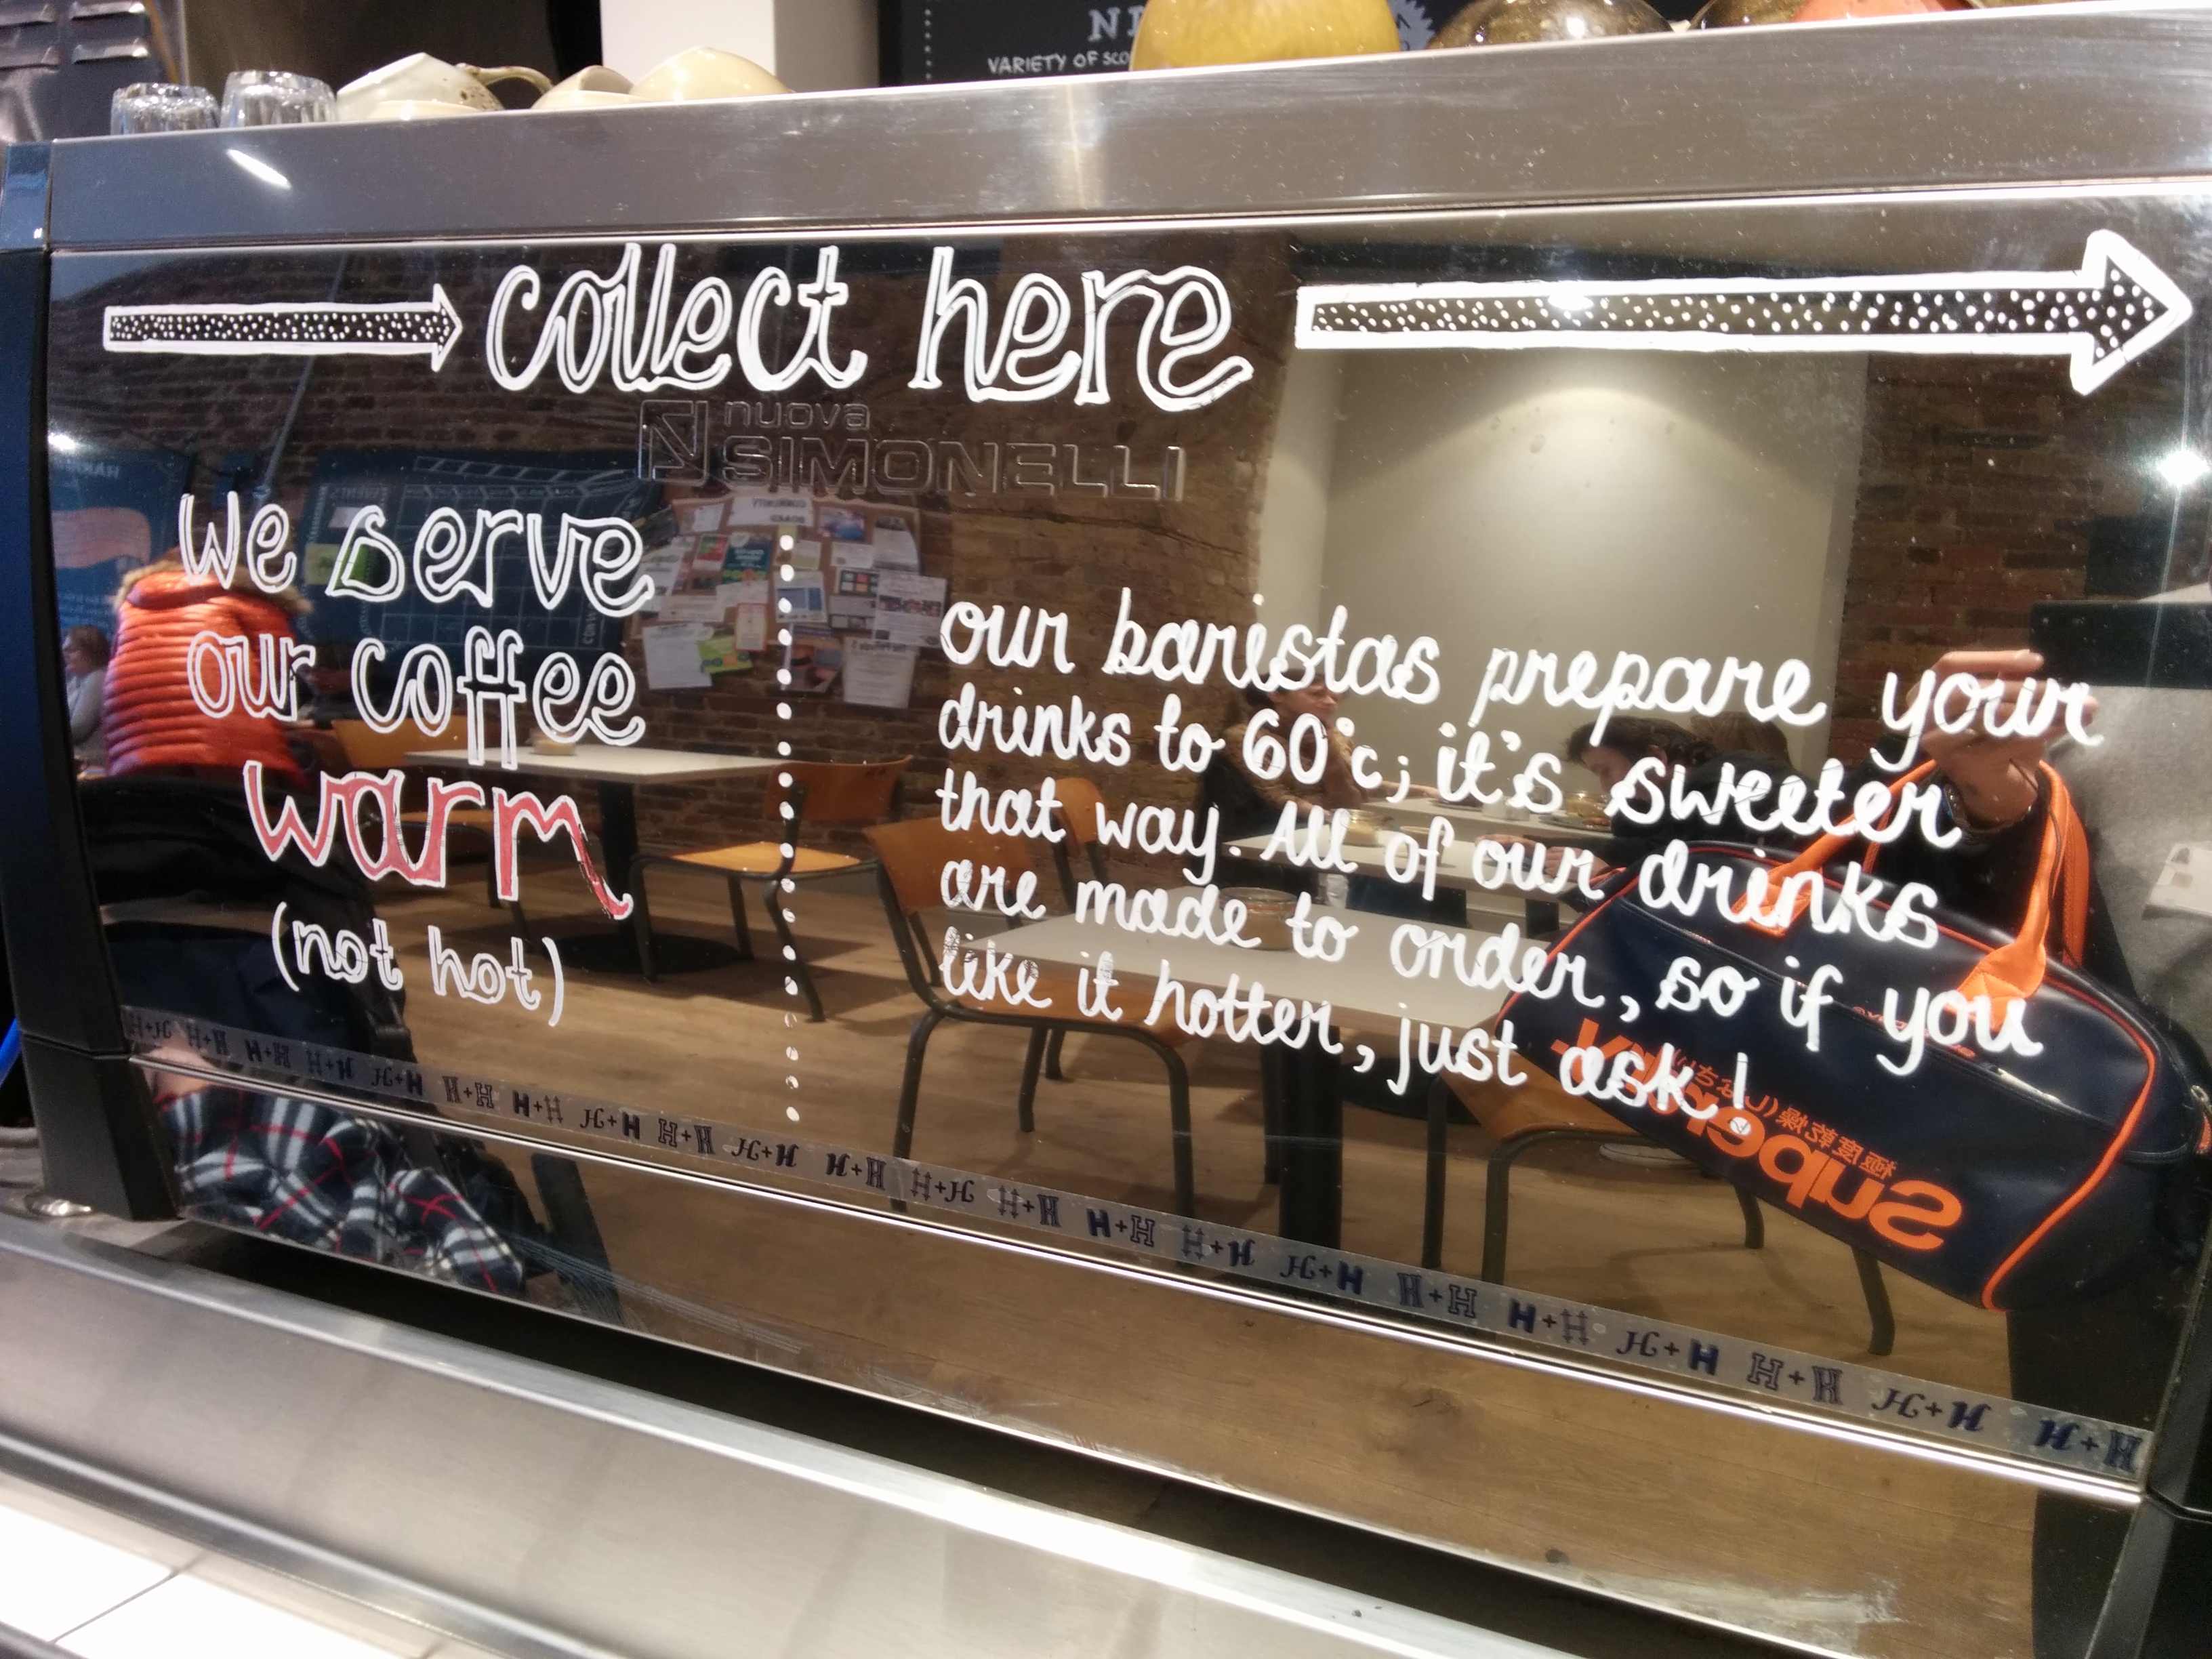 VARIETY OF
collect here
nuova
SIMONELLI
We serve
our coffee
warm
(not hot)
our baristas prepare your
drinks to 60°c; it's sweeter
that way. All of our drinks
are made to order, so if you
like it hotter, just ask!
COMMUNITY
BOARD
Superdry
極度乾燥(しなさい)
H+H H+H H+H H+H H+H H+H H+H H+H H+H H+H H+H H+H H+H H+H H+H H+H H+H H+H H+H H+H H+H H+H